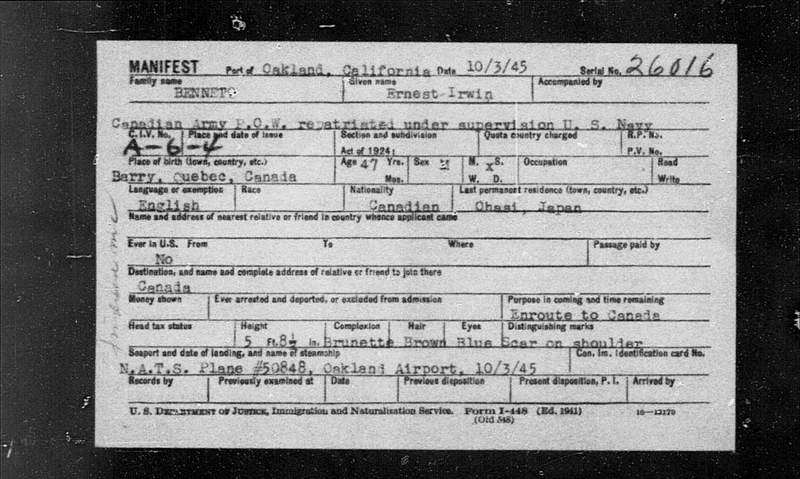 MANIFEST Port of Oakland, California Date 10/3/45 Serial No. 26016
Family name Given name Accompanied by
BENNETT Ernest Irwin
Canadian Army P.O.W. repatriated under supervision U. S. Navy
C.I.V. No. Place and date of issue Section and subdivision Quota country charged R.P. No.
A-6-4 Act of 1924: P.V. No.
Place of birth (town, country, etc.) Age 47 Yrs. Sex M M. S. Occupation Read
Barry, Quebec, Canada Mos. W. X D. Write
Language or exemption Race Nationality Last permanent residence (town, country, etc.)
English Canadian Ohasi, Japan
Name and address of nearest relative or friend in country whence applicant came
Ever in U.S. From To Where Passage paid by
No
Destination, and name and complete address of relative or friend to join there
Canada
Money shown Ever arrested and deported, or excluded from admission Purpose in coming and time remaining
Enroute to Canada
Head tax status Height Complexion Hair Eyes Distinguishing marks
5 Ft. 8½ In. Brunette Brown Blue Scar on shoulder
Seaport and date of landing, and name of steamship Can. Im. Identification card No.
N.A.T.S. Plane #50848, Oakland Airport, 10/3/45
Records by Previously examined at Date Previous disposition Present disposition, P. I. Arrived by
U. S. DEPARTMENT OF JUSTICE, Immigration and Naturalization Service. Form I-448 (Ed. 1941) 16—12170
(Old 548)